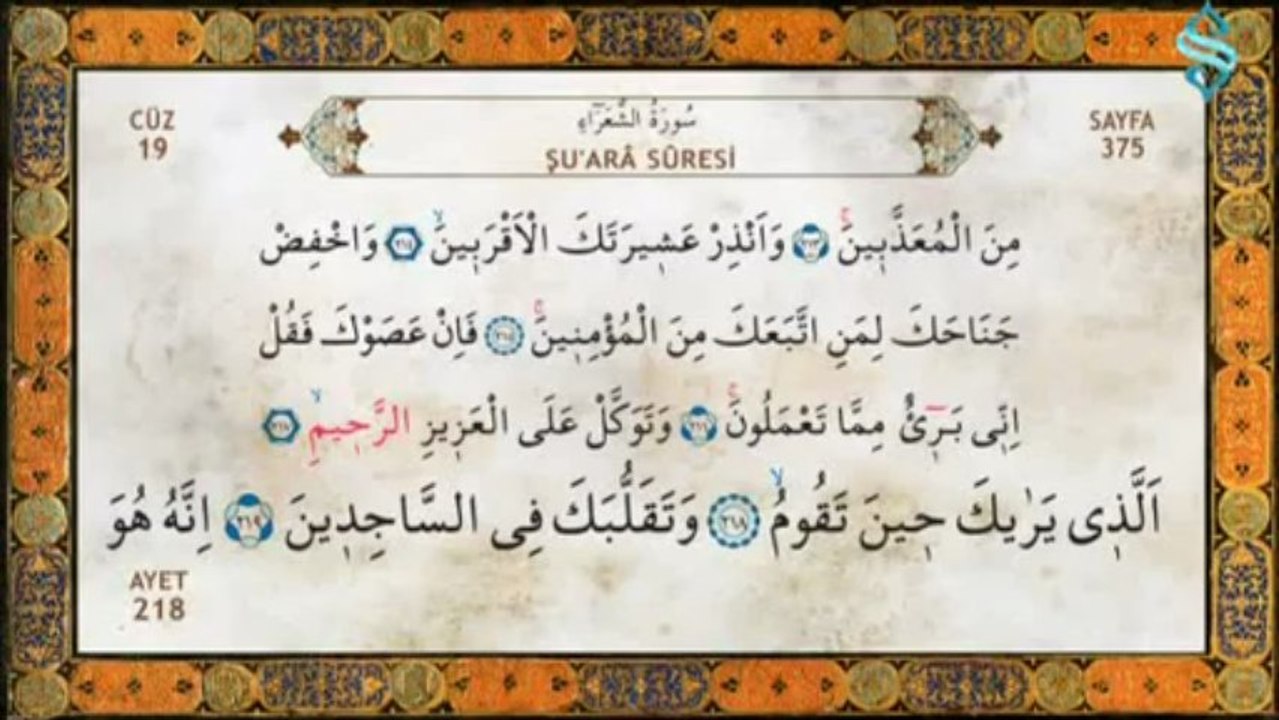 CÜZ
19
سُورَةُ الشُّعَرَٓاءِ
ŞU'ARÂ SÛRESİ
SAYFA
375
مِنَ الْمُعَذَّب۪ينَۚ ﴿٢١٣﴾ وَاَنْذِرْ عَش۪يرَتَكَ الْاَقْرَب۪ينَۙ ﴿٢١٤﴾ وَاخْفِضْ
جَنَاحَكَ لِمَنِ اتَّبَعَكَ مِنَ الْمُؤْمِن۪ينَۚ ﴿٢١٥﴾ فَاِنْ عَصَوْكَ فَقُلْ
اِنّ۪ي بَر۪ٓيءٌ مِمَّا تَعْمَلُونَۚ ﴿٢١٦﴾ وَتَوَكَّلْ عَلَى الْعَز۪يزِ الرَّح۪يمِۙ ﴿٢١٧﴾
اَلَّذ۪ي يَرٰيكَ ح۪ينَ تَقُومُۙ ﴿٢١٨﴾ وَتَقَلُّبَكَ فِي السَّاجِد۪ينَ ﴿٢١٩﴾ اِنَّهُ هُوَ
AYET
218